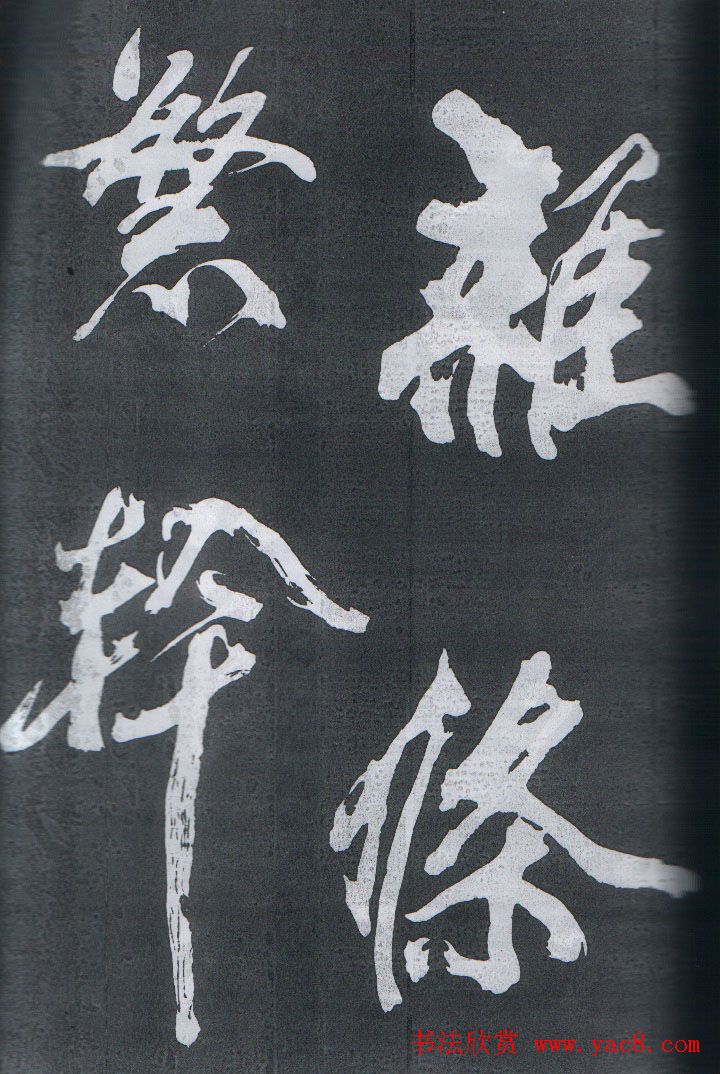 離條
繁幹
书法欣赏 www.yac8.com